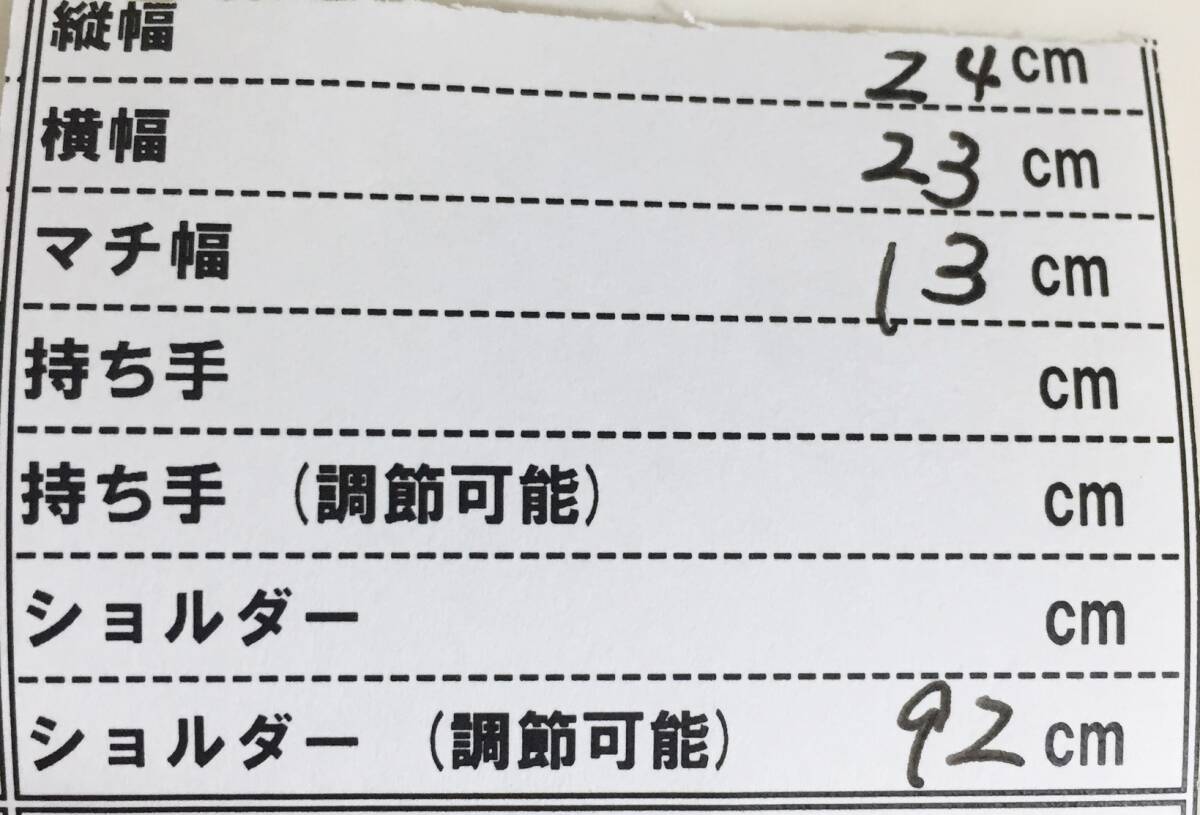 縦幅 24 cm
横幅 23 cm
マチ幅 13 cm
持ち手 cm
持ち手 (調節可能) cm
ショルダー cm
ショルダー (調節可能) 92 cm